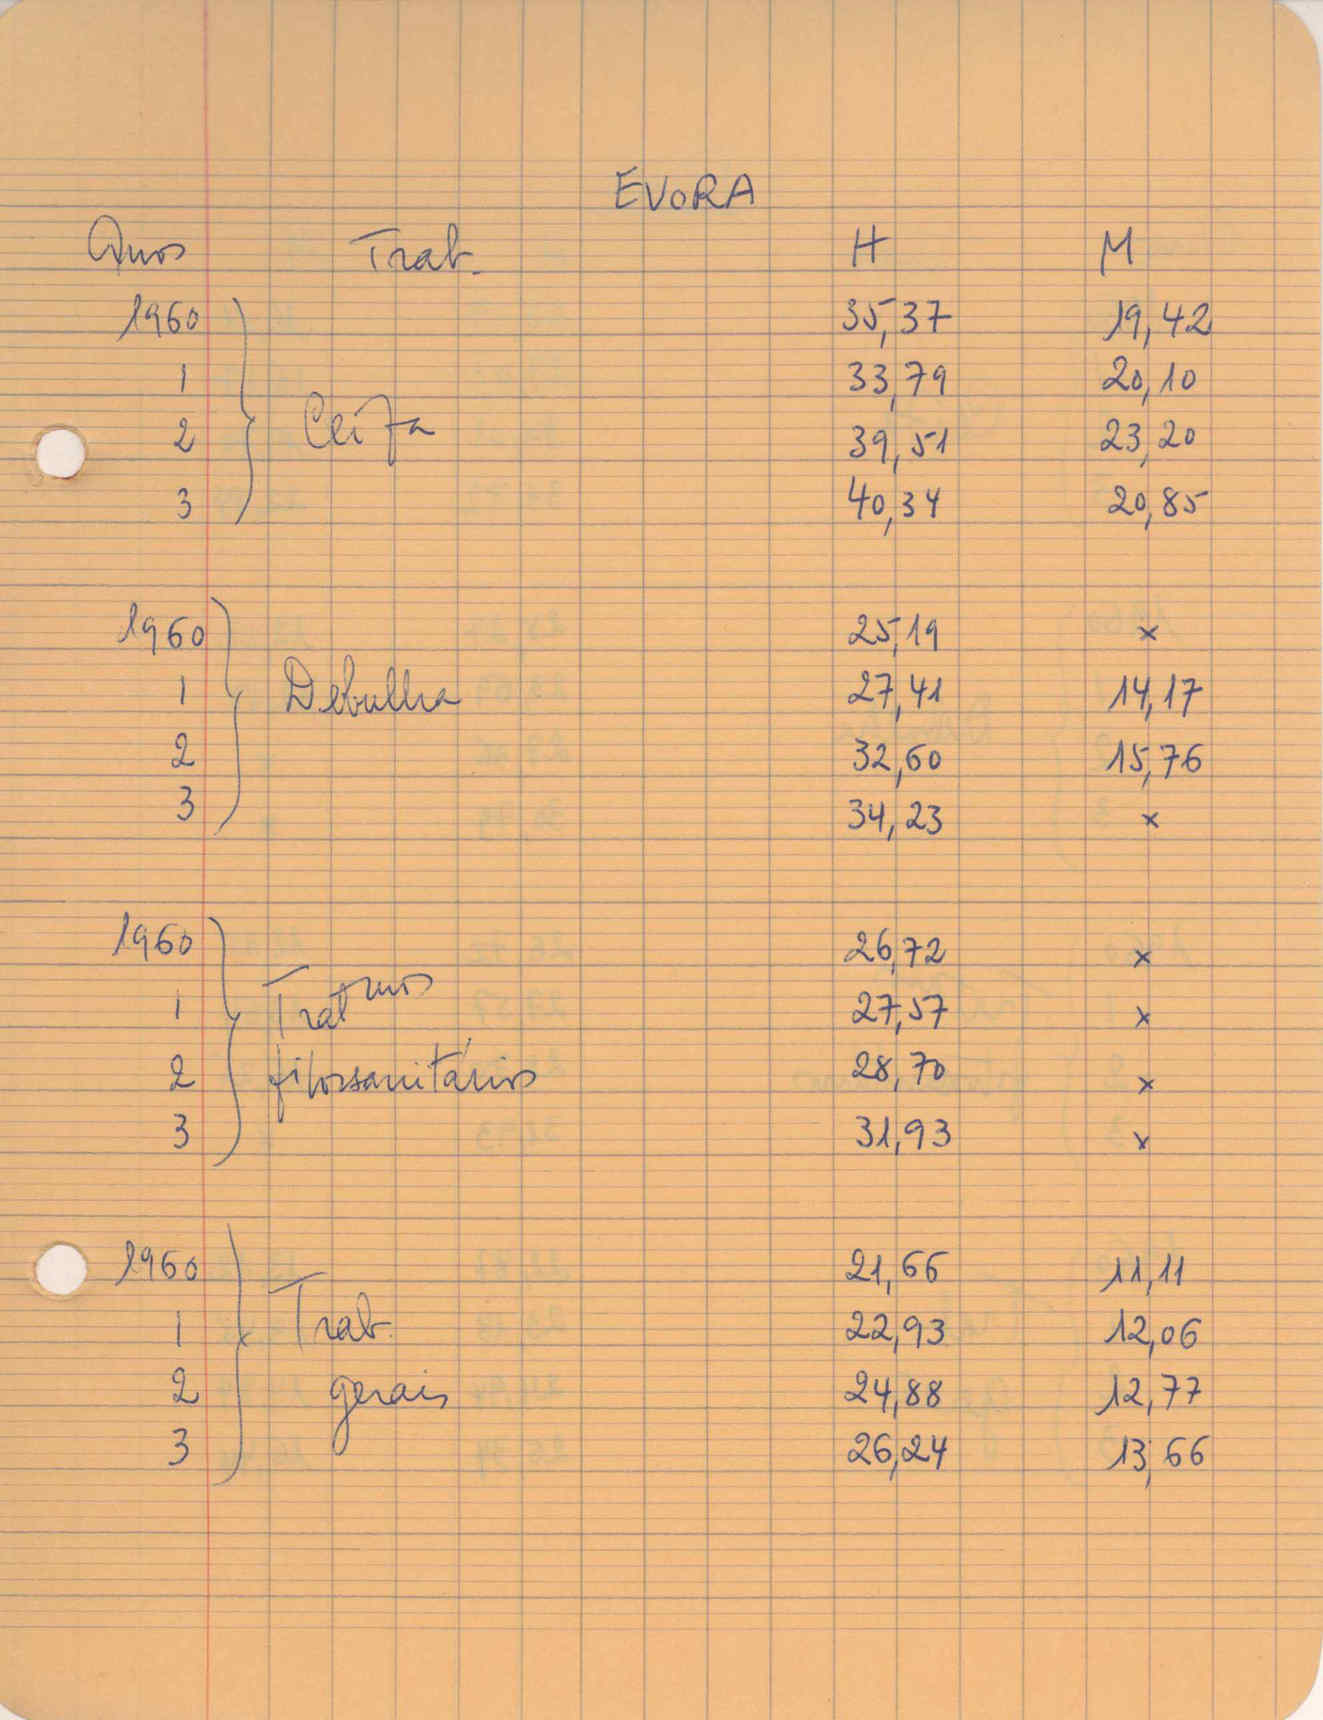 EVORA
Anos Trab. H M
1960 35,37 19,42
1 33,79 20,10
2 Ceifa 39,51 23,20
3 40,34 20,85
1960 25,19 x
1 Debulha 27,41 14,17
2 32,60 15,76
3 34,23 x
1960 26,72 x
1 Trat mos 27,57 x
2 fitossanitários 28,70 x
3 31,93 x
1960 21,66 11,11
1 Trab. 22,93 12,06
2 gerais 24,88 12,77
3 26,24 13,66